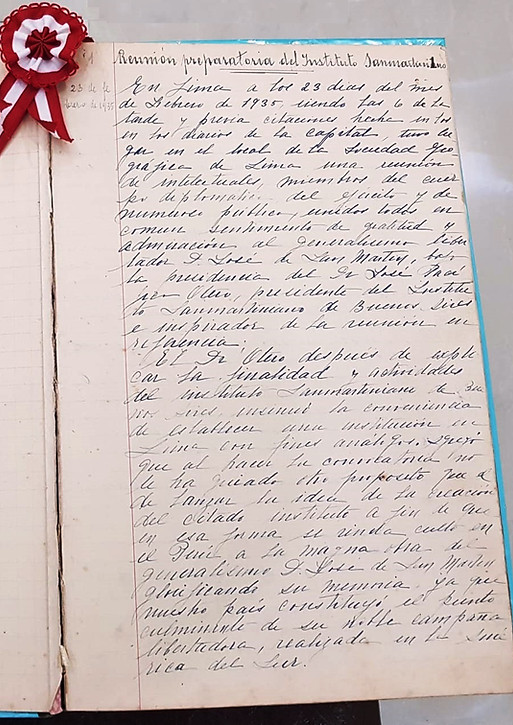 Reunión preparatoria del Instituto Sanmartiniano
23 de fe
brero de 1935
En Lima a los 23 dias del mes
de Febrero de 1935, siendo las 6 de la
tarde y previa citaciones hecha en los
en los diarios de la capital, tuvo lu
gar en el local de la Sociedad Geo
gráfica de Lima una reunión
de intelectuales, miembros del cuer
po diplomatico, del ejército y de
numeroso público, unidos todos en
comun sentimento de gratitud y
admiración al generalisimo liber
tador D. José de San Martin, bajo
la presidencia del Dr José Paci
fico Otero, presidente del Institu
to Sanmartiniano de Buenos Aires
e inspirador de la reunión en
referencia.
El Dr Otero después de expli
car la finalidad y actividades
del instituto Sanmartiniano de Bue
nos Aires insinuó la conveniencia
de establecer una institución en
Lima con fines análogos. Agregó
que al hacer la convocatoria no
le ha guiado otro proposito que el
de lanzar la idea de la creación
del citado instituto a fin de que
en esa forma se rinda culto en
el Perú a la magna obra del
generalisimo D. Jose de San Martin
glorificando su memoria, ya que
nuestro pais constituyó el punto
culminante de su noble campaña
libertadora, realizada en la Amé
rica del Sur.